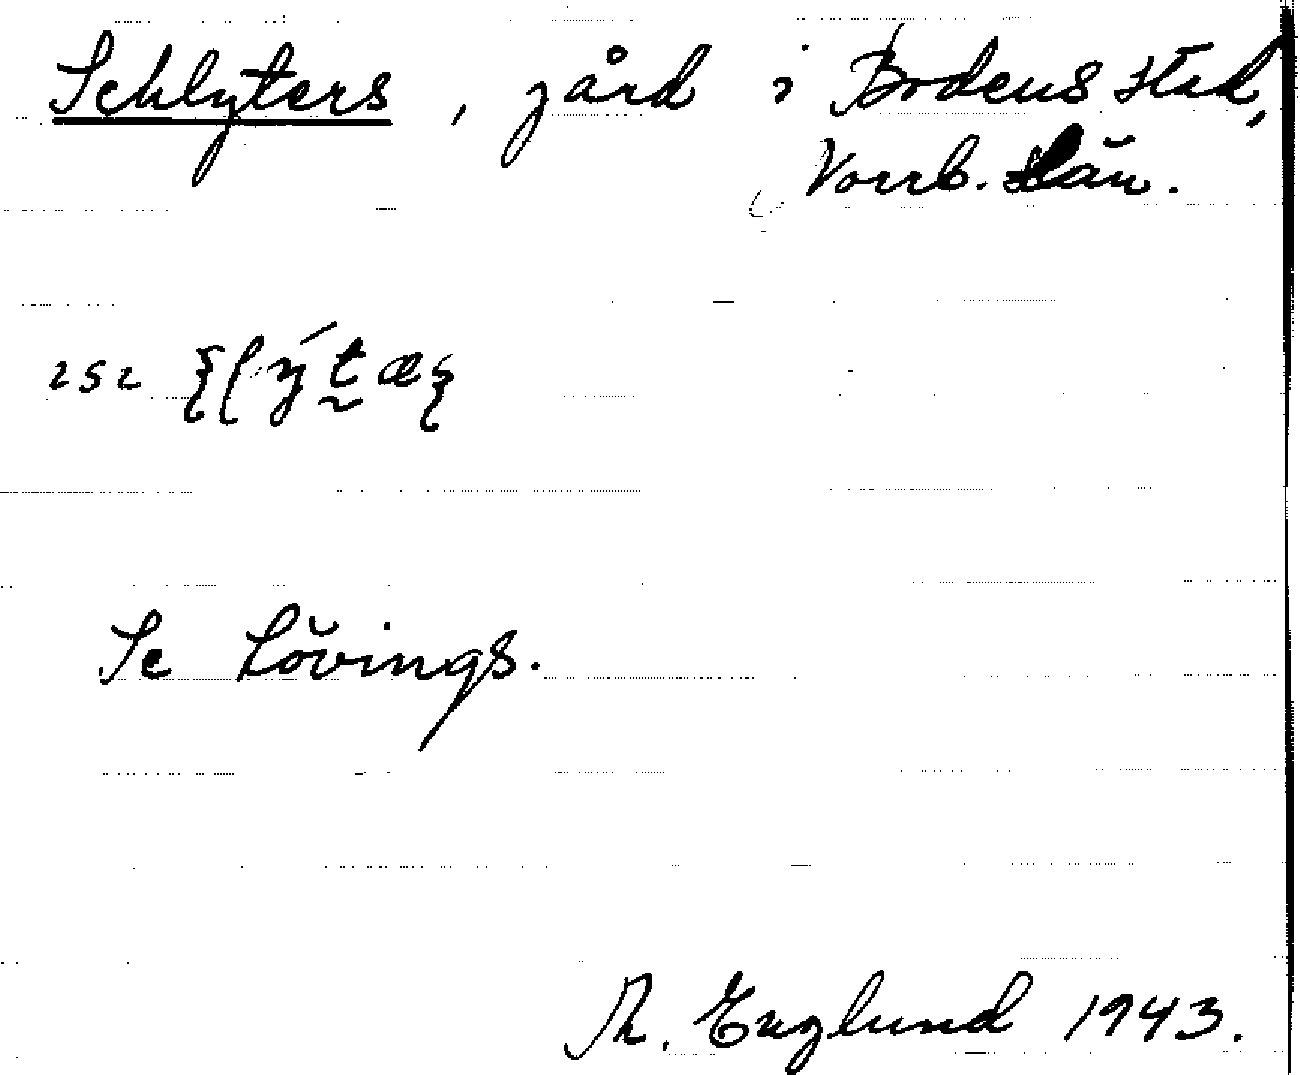 Schlyters, gård i Bodens stad,
Norrb. län.
Se Lövings.
R. Englund 1943.